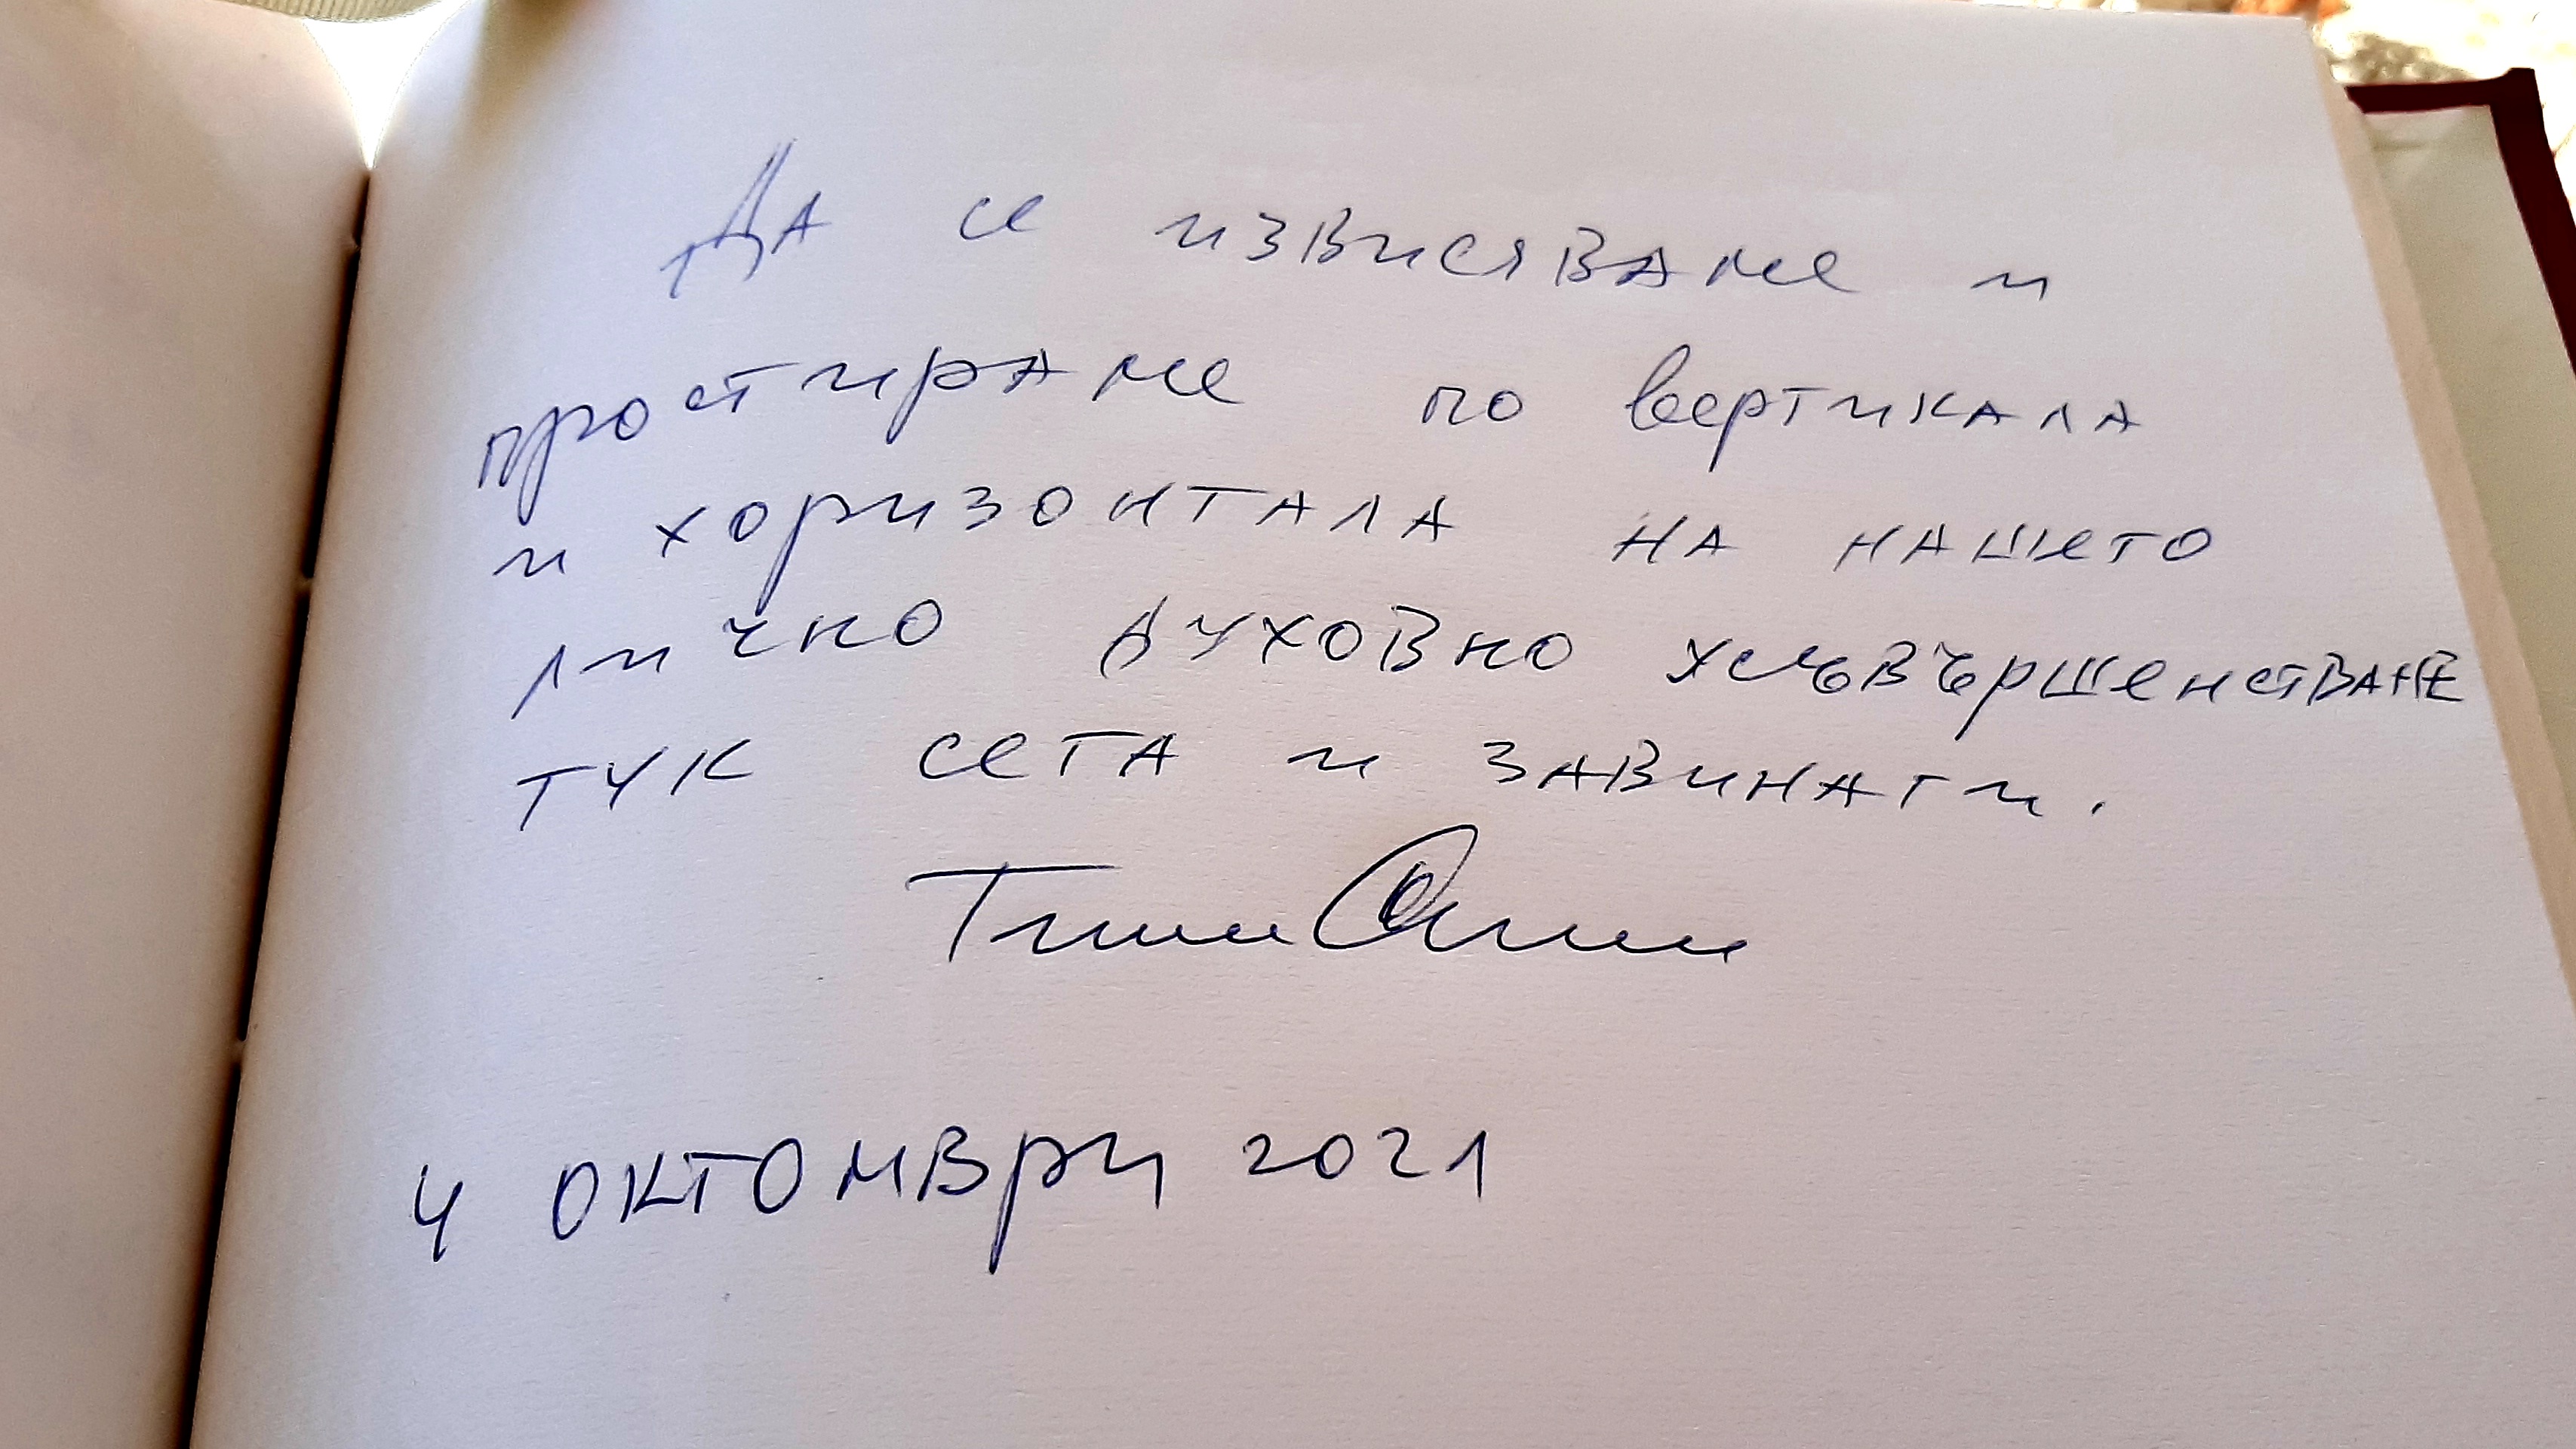 Да се извисяваме и
простираме по вертикала
и хоризонтала на нашето
лично духовно усъвършенстване
тук сега и завинаги.
4 октомври 2021